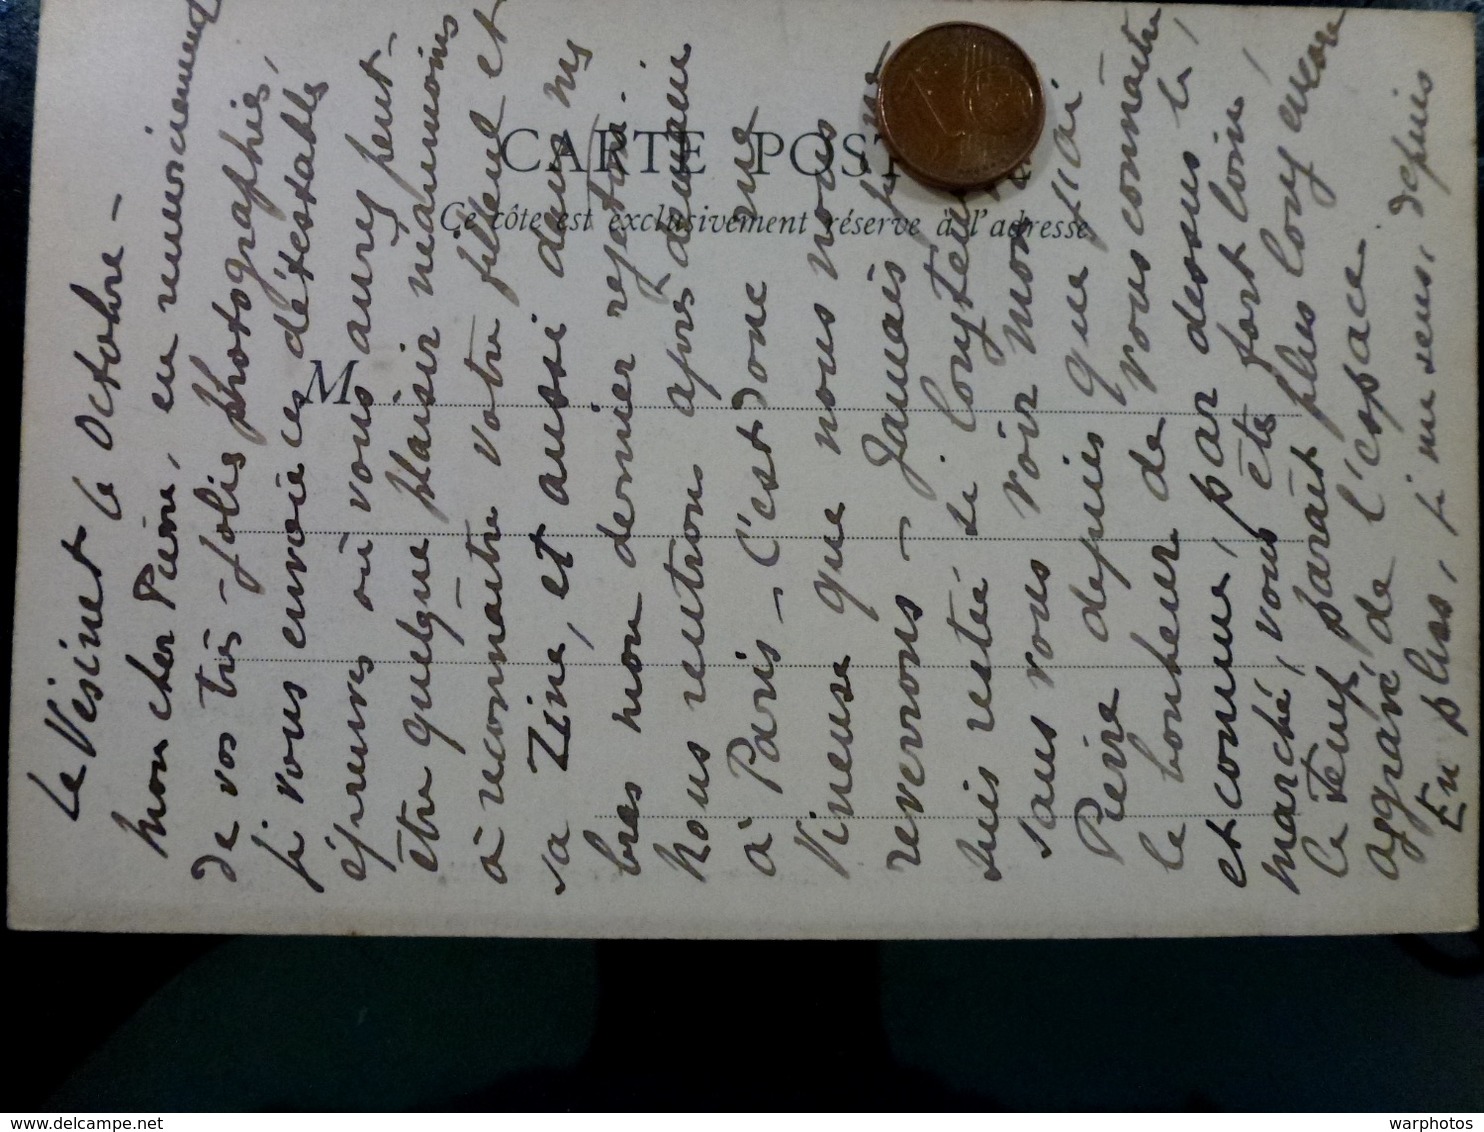 CARTE POST
Ce côte est exclusivement réservé à l'adresse
M
Le Vésinet le Octobre -
Mon cher Pierre, en remerciement
de vos très jolies photographies,
je vous envoie ces détestables
épreuves où vous aurez peut-
être quelque plaisir néanmoins
à reconnaître votre filleul et
sa Zine, et aussi dans mes
bras mon dernier rejeton.
Nous rentrons après demain
à Paris - C'est donc rue
Vineuse que nous nous
reverrons - Jamais je ne
suis resté si longtemps
sans vous voir mon
Pierre depuis que j'ai
le bonheur de vous connaitre
et comme, par dessus le
marché, vous êtes fort loin,
le temps paraît plus long encore
aggravé de l'espace.
En plus, je me sens, depuis
warphotos